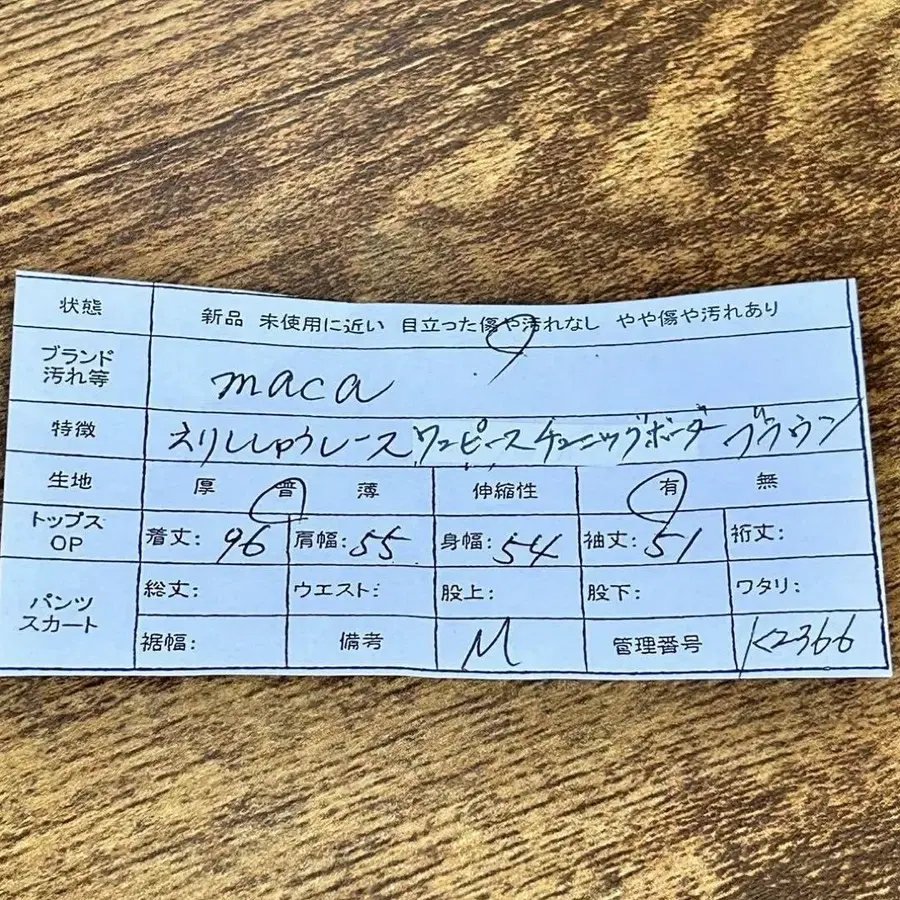 状態 新品 未使用に近い 目立った傷や汚れなし やや傷や汚れあり
ブランド
汚れ等 maca
特徴 えりししゅうレースワンピースチュニックボーダーブラウン
生地 厚 普 薄 伸縮性 有 無
トップス
OP 着丈: 96 肩幅: 55 身幅: 54 袖丈: 51 裄丈:
パンツ
スカート 総丈: ウエスト: 股上: 股下: ワタリ:
裾幅: 備考 M 管理番号 K2366